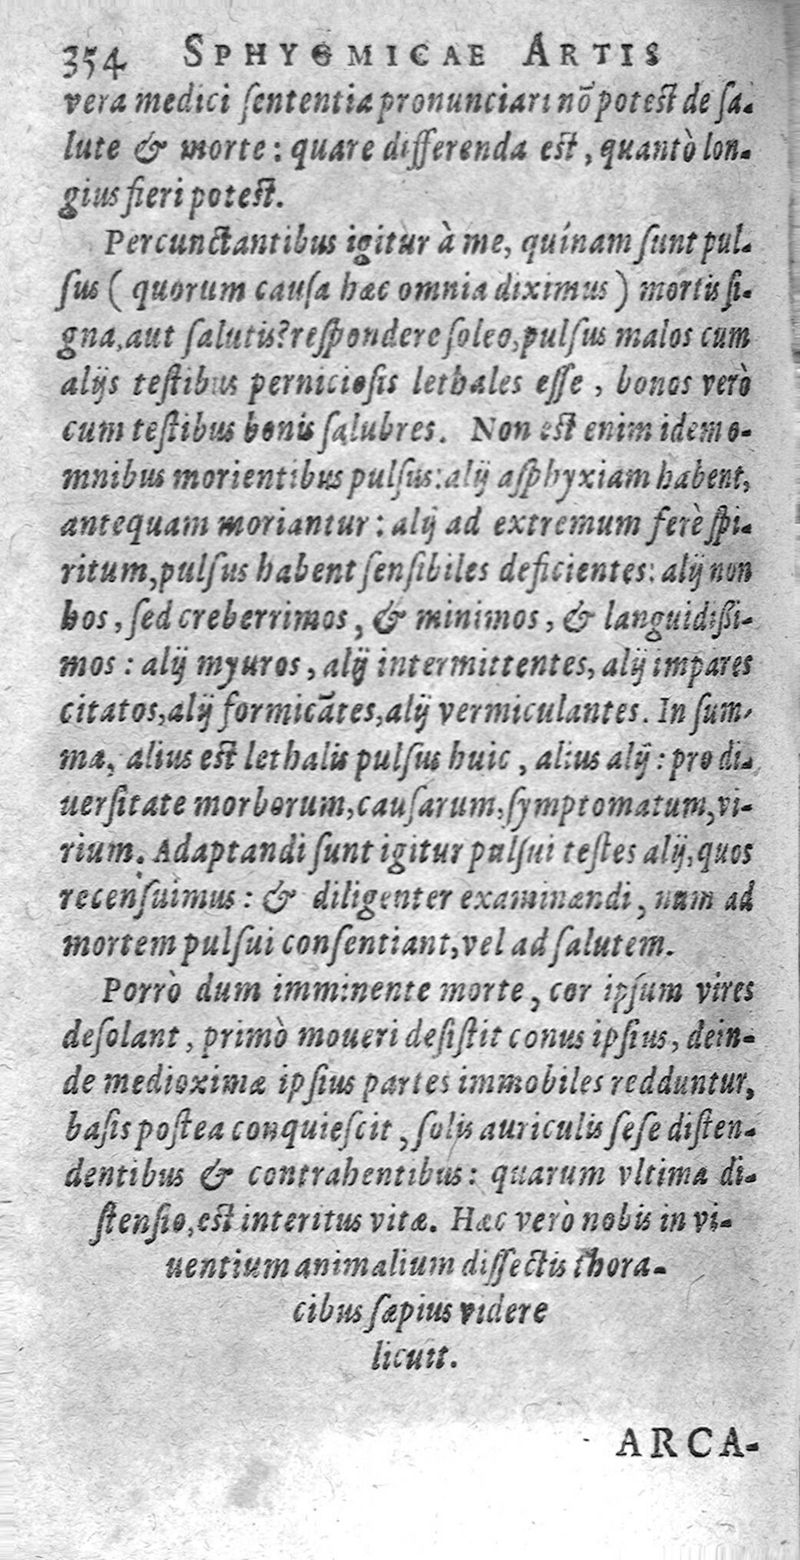 354 SPHYGMICAE ARTIS
vera medici ſententia pronunciari nõ poteſt de ſa-
lute & morte: quare differenda eſt, quantò lon-
gius fieri poteſt.
Percunctantibus igitur à me, quínam ſunt pul-
ſus (quorum cauſa hæc omnia diximus) mortis ſi-
gna, aut ſalutis? reſpondere ſoleo, pulſus malos cum
alijs teſtibus pernicioſis lethales eſſe, bonos verò
cum teſtibus bonis ſalubres. Non eſt enim idem o-
mnibus morientibus pulſus: alij aſphyxiam habent,
antequam moriantur: alij ad extremum ferè ſpi-
ritum, pulſus habent ſenſibiles deficientes: alij non
hos, ſed creberrimos, & minimos, & languidiſſi-
mos: alij myuros, alij intermittentes, alij impares
citatos, alij formicãtes, alij vermiculantes. In ſum-
ma, alius eſt lethalis pulſus huic, alius alij: pro di-
uerſitate morborum, cauſarum, ſymptomatum, vi-
rium. Adaptandi ſunt igitur pulſui teſtes alij, quos
recenſuimus: & diligenter examinandi, num ad
mortem pulſui conſentiant, vel ad ſalutem.
Porrò dum imminente morte, cor ipſum vires
deſolant, primò moueri deſiſtit conus ipſius, dein-
de medioximæ ipſius partes immobiles redduntur,
baſis poſtea conquieſcit, ſolis auriculis ſeſe diſten-
dentibus & contrahentibus: quarum vltima di-
ſtenſio, eſt interitus vitæ. Hæc verò nobis in vi-
uentium animalium diſſectis thora-
cibus ſæpius videre
licuit.
ARCA-